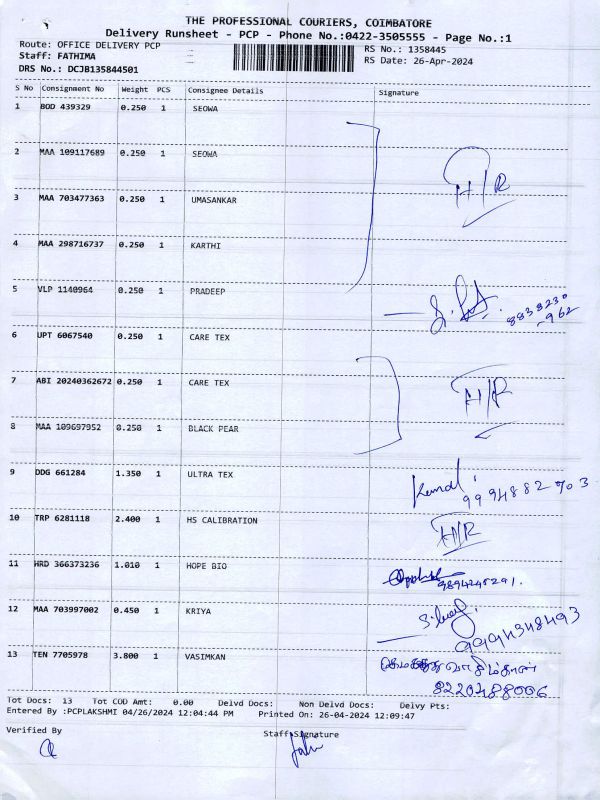 THE PROFESSIONAL COURIERS, COIMBATORE
Delivery Runsheet - PCP - Phone No.:0422-3505555 - Page No.:1
Route: OFFICE DELIVERY PCP RS No.: 1358445
Staff: FATHIMA RS Date: 26-Apr-2024
DRS No.: DCJB135844501
S No Consignment No Weight PCS Consignee Details Signature
1 BOD 439329 0.250 1 SEOWA
2 MAA 109117689 0.250 1 SEOWA H/R
3 MAA 703477363 0.250 1 UMASANKAR
4 MAA 298716737 0.250 1 KARTHI
5 VLP 1140964 0.250 1 PRADEEP 8838230
962
6 UPT 6067540 0.250 1 CARE TEX
7 ABI 20240362672 0.250 1 CARE TEX H/R
8 MAA 109697952 0.250 1 BLACK PEAR
9 DDG 661284 1.350 1 ULTRA TEX
9994882703
10 TRP 6281118 2.400 1 HS CALIBRATION H/R
11 HRD 366373236 1.010 1 HOPE BIO
12 MAA 703997002 0.450 1 KRIYA
9994348493
13 TEN 7705978 3.800 1 VASIMKAN
8220488006
Tot Docs: 13 Tot COD Amt: 0.00 Delvd Docs: Non Delvd Docs: Delvy Pts:
Entered By :PCPLAKSHMI 04/26/2024 12:04:44 PM Printed On: 26-04-2024 12:09:47
Verified By Staff Signature